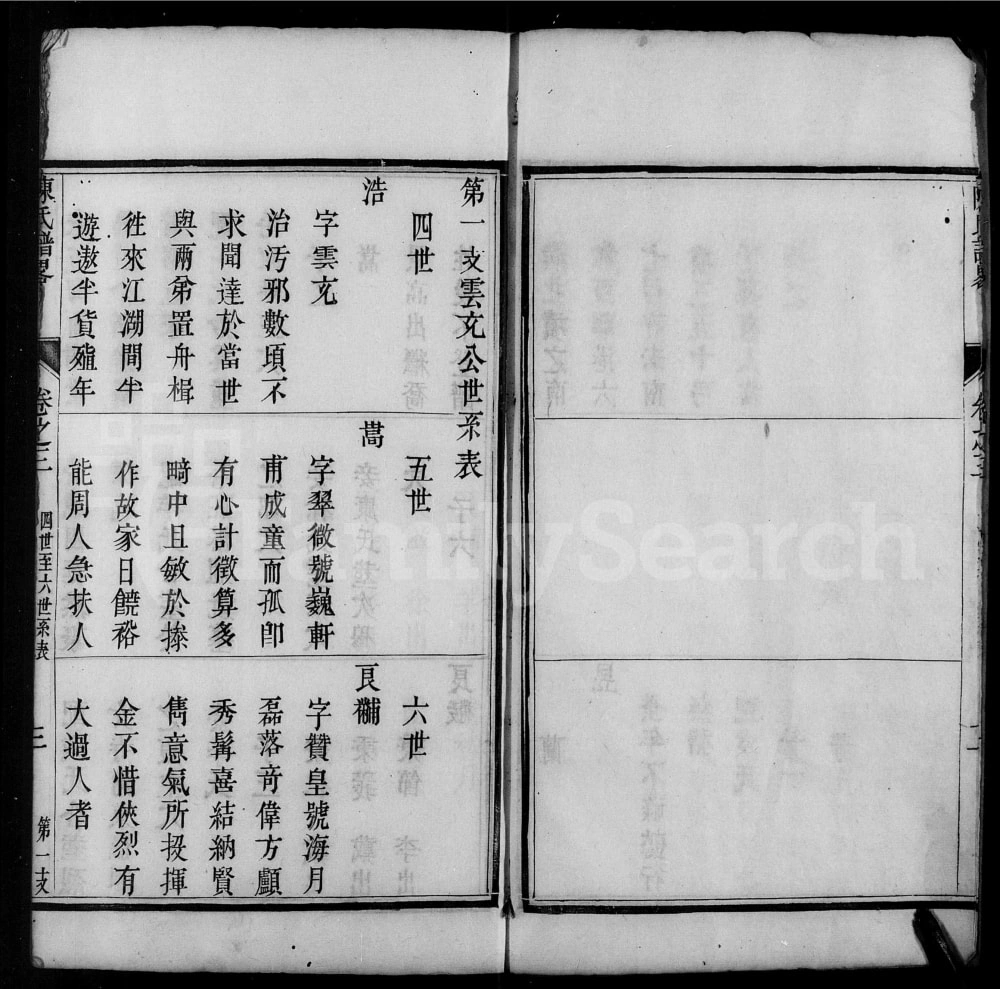 第一支雲充公世系表
四世
浩
字雲充
治汚邪數頃不
求聞達於當世
與兩弟置舟楫
徃來江湖間半
遊遨半貨殖年
五世
蒿
字翠微號巍軒
甫成童而孤卽
有心計徵算多
畸中且敏於操
作故家日饒裕
能周人急扶人
六世
良黼
字贊皇號海月
磊落竒偉方顱
秀髯喜結納賢
雋意氣所投揮
金不惜俠烈有
大過人者
陳氏譜畧
卷之三
四世至六世系表
三
第一支
FamilySearch